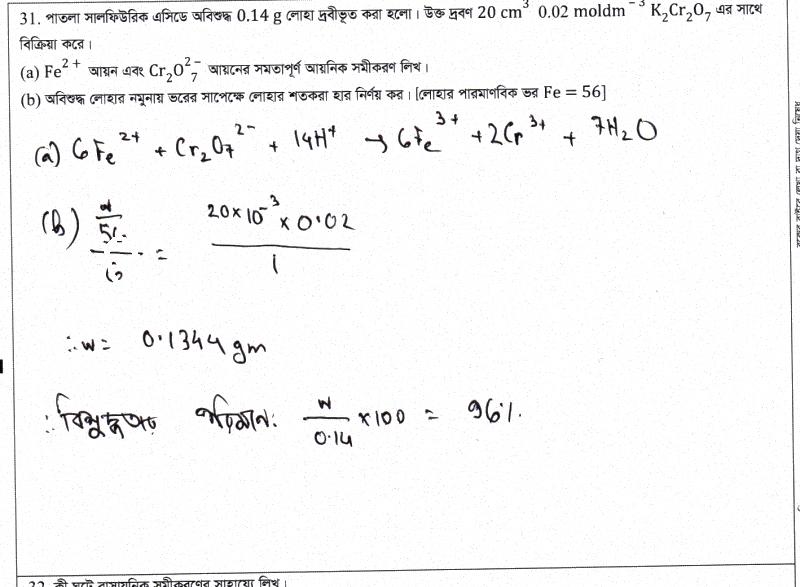 31. পাতলা সালফিউরিক এসিডে অবিশুদ্ধ 0.14 g লোহা দ্রবীভূত করা হলো। উক্ত দ্রবণ 20 cm³ 0.02 moldm⁻³ K₂Cr₂O₇ এর সাথে
বিক্রিয়া করে।
(a) Fe²⁺ আয়ন এবং Cr₂O₇²⁻ আয়নের সমতাপূর্ণ আয়নিক সমীকরণ লিখ।
(b) অবিশুদ্ধ লোহার নমুনায় ভরের সাপেক্ষে লোহার শতকরা হার নির্ণয় কর। [লোহার পারমাণবিক ভর Fe = 56]
(a) 6Fe²⁺ + Cr₂O₇²⁻ + 14H⁺ → 6Fe³⁺ + 2Cr³⁺ + 7H₂O
(b) w/56/6 = 20×10⁻³×0.02/1
∴ w = 0.1344 gm
∴ বিশুদ্ধতার পরিমান: w/0.14 ×100 = 96%.